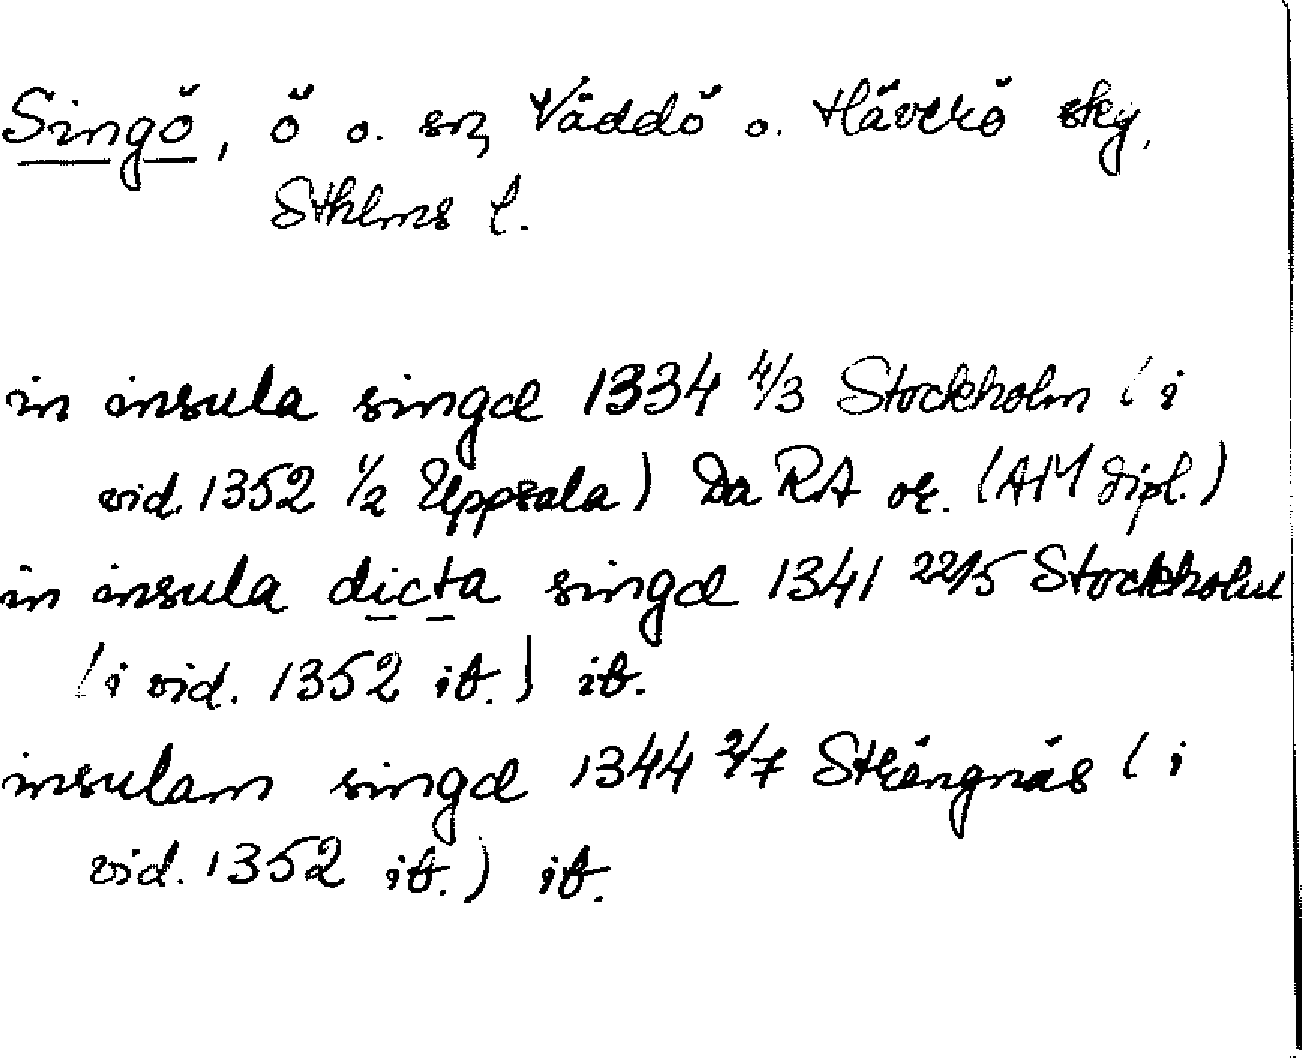 Singö, ö o. sn, Väddö o. Häverö sky,
Sthlms l.
in insula singø 1334 4/3 Stockholm (i
vid. 1352 1/2 Uppsala) Da RA or. (AM dipl.)
in insula dicta singø 1341 22/5 Stockholm
(i vid. 1352 ib.) ib.
insulam singø 1344 2/7 Strängnäs (i
vid. 1352 ib.) ib.